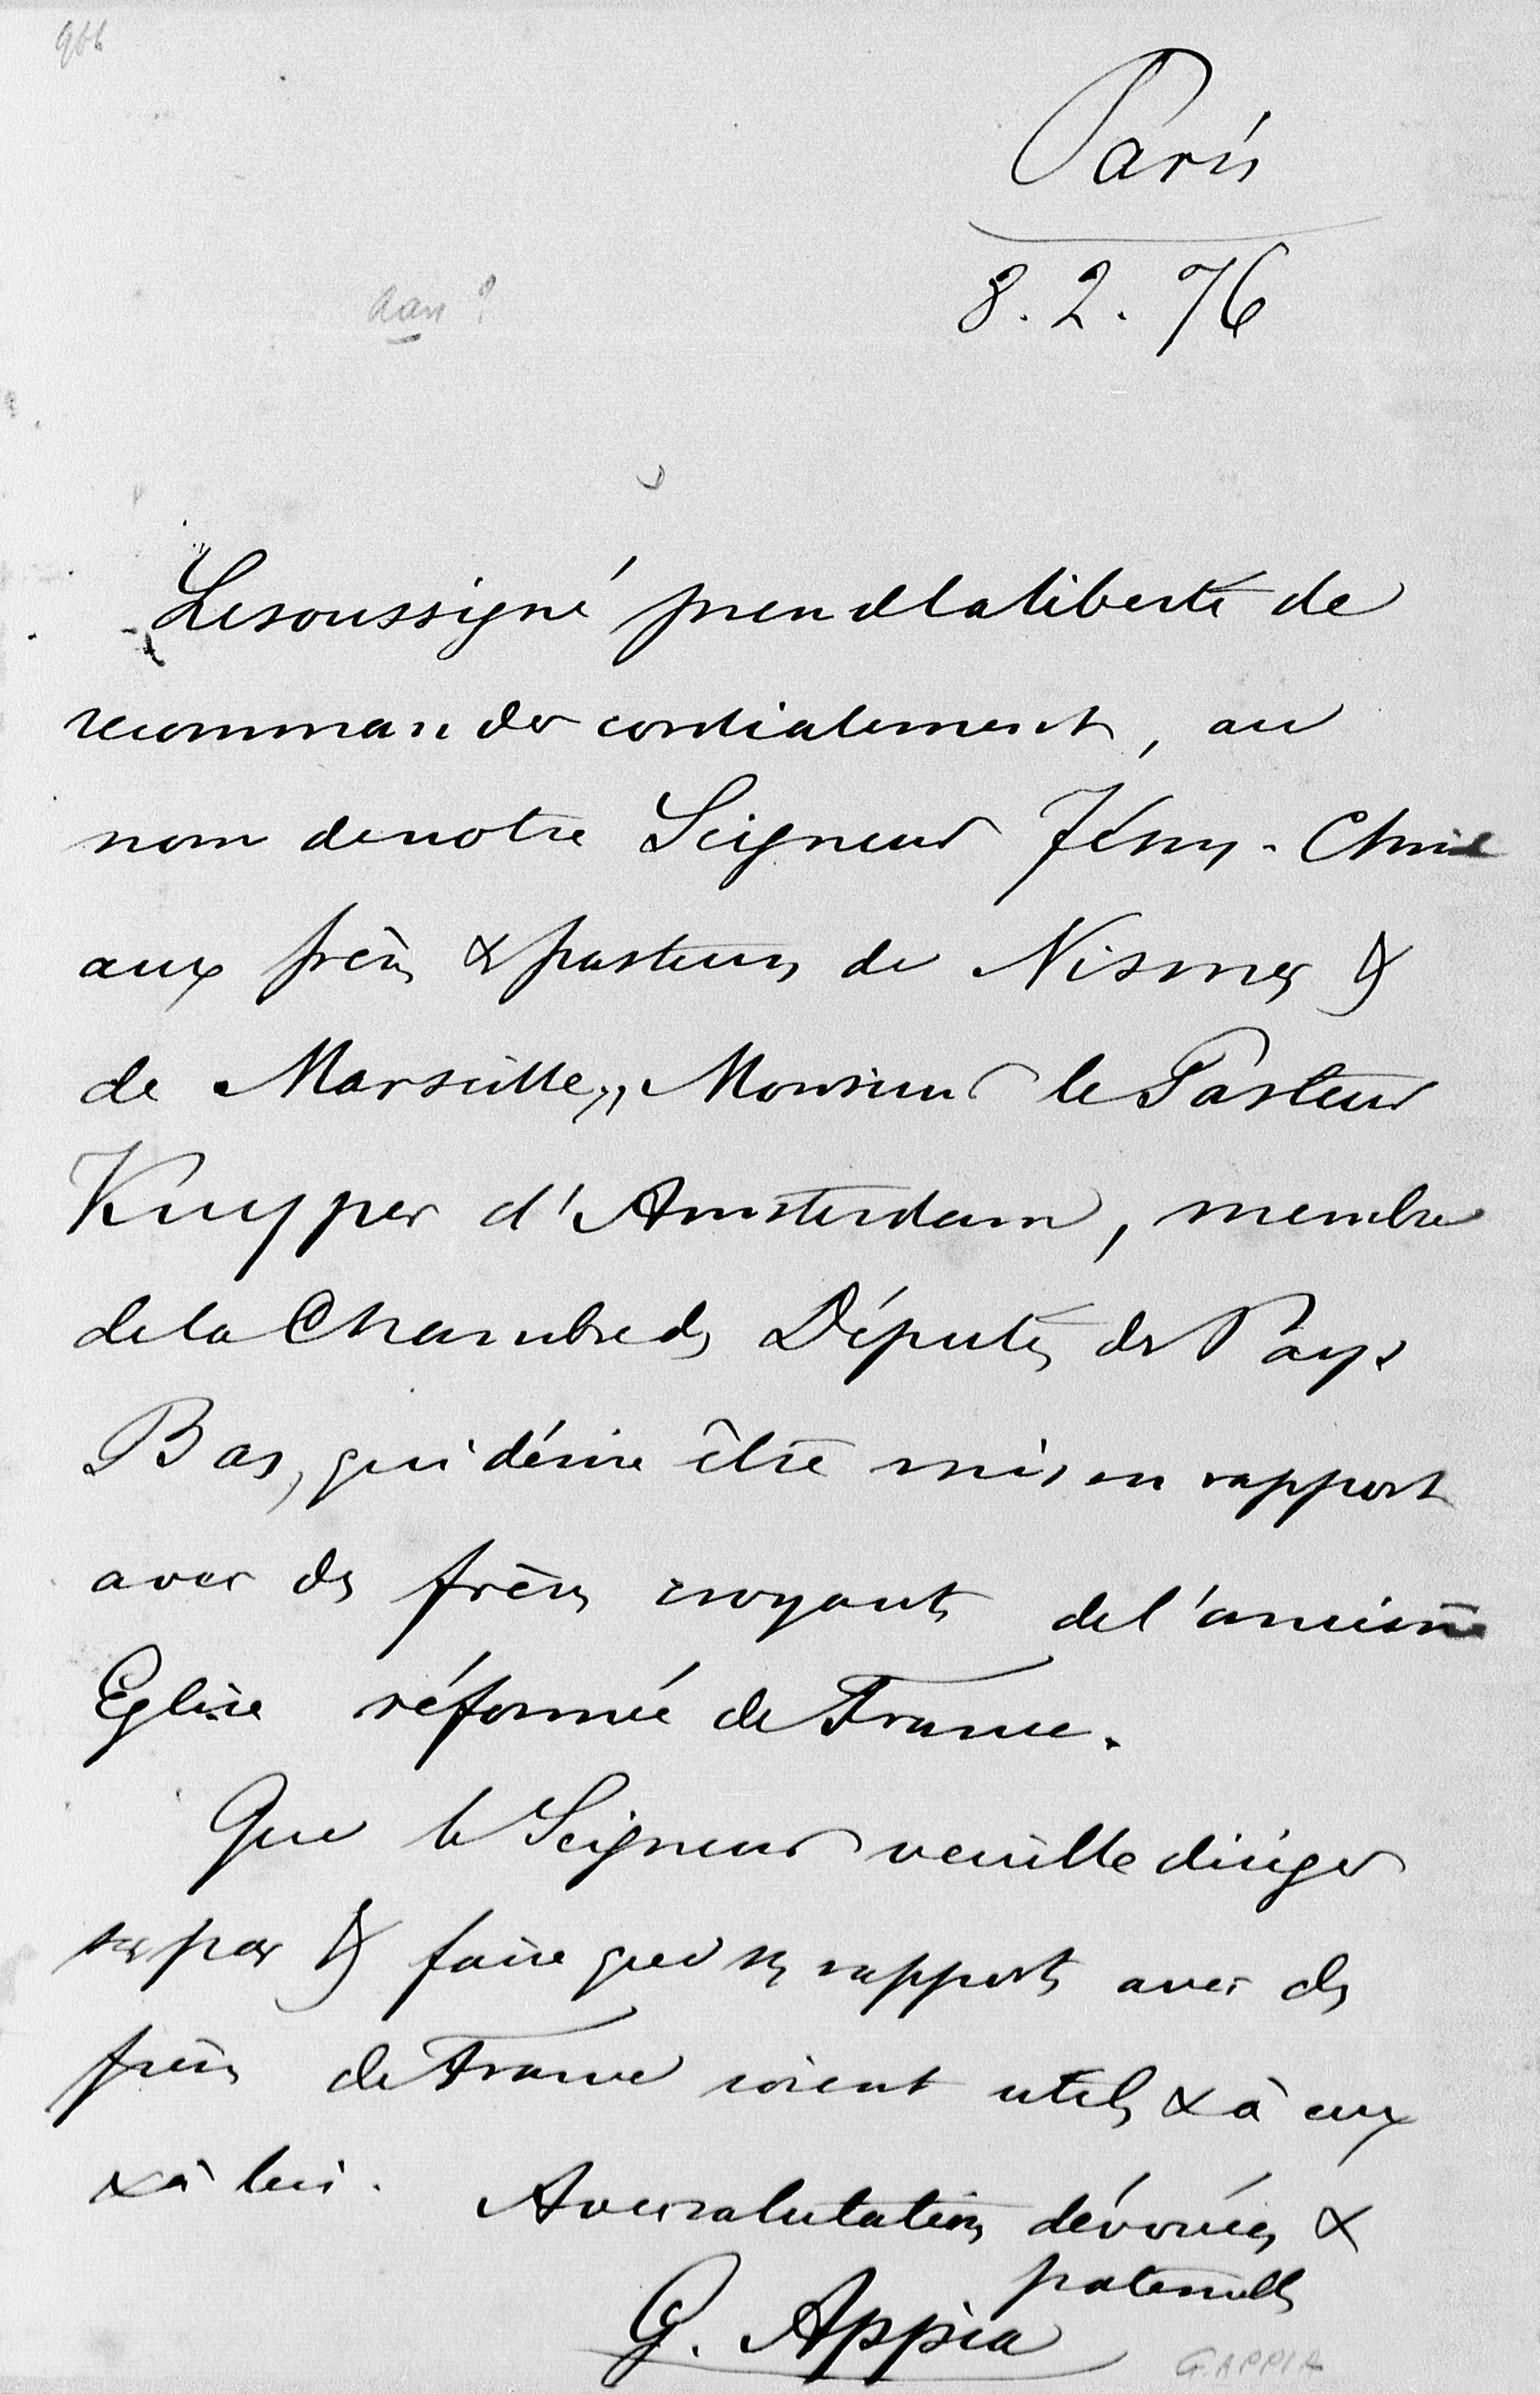 966
Paris
8. 2. 76
aan ?
Le soussigné prend la liberté de
recommander cordialement, au
nom de notre Seigneur Jésus-Christ
aux frères & pasteurs de Nismes &
de Marseille, Monsieur le Pasteur
Kuyper d'Amsterdam, membre
de la Chambre des Députés des Pays
Bas, qui désire être mis en rapport
avec des frères croyants de l'ancienne
Eglise réformée de France.
Que le Seigneur veuille diriger
ses pas & faire que ses rapports avec des
frères de France soient utiles & à eux
& à lui. Avec salutations dévouées &
fraternelles
G. Appia
G. APPIA